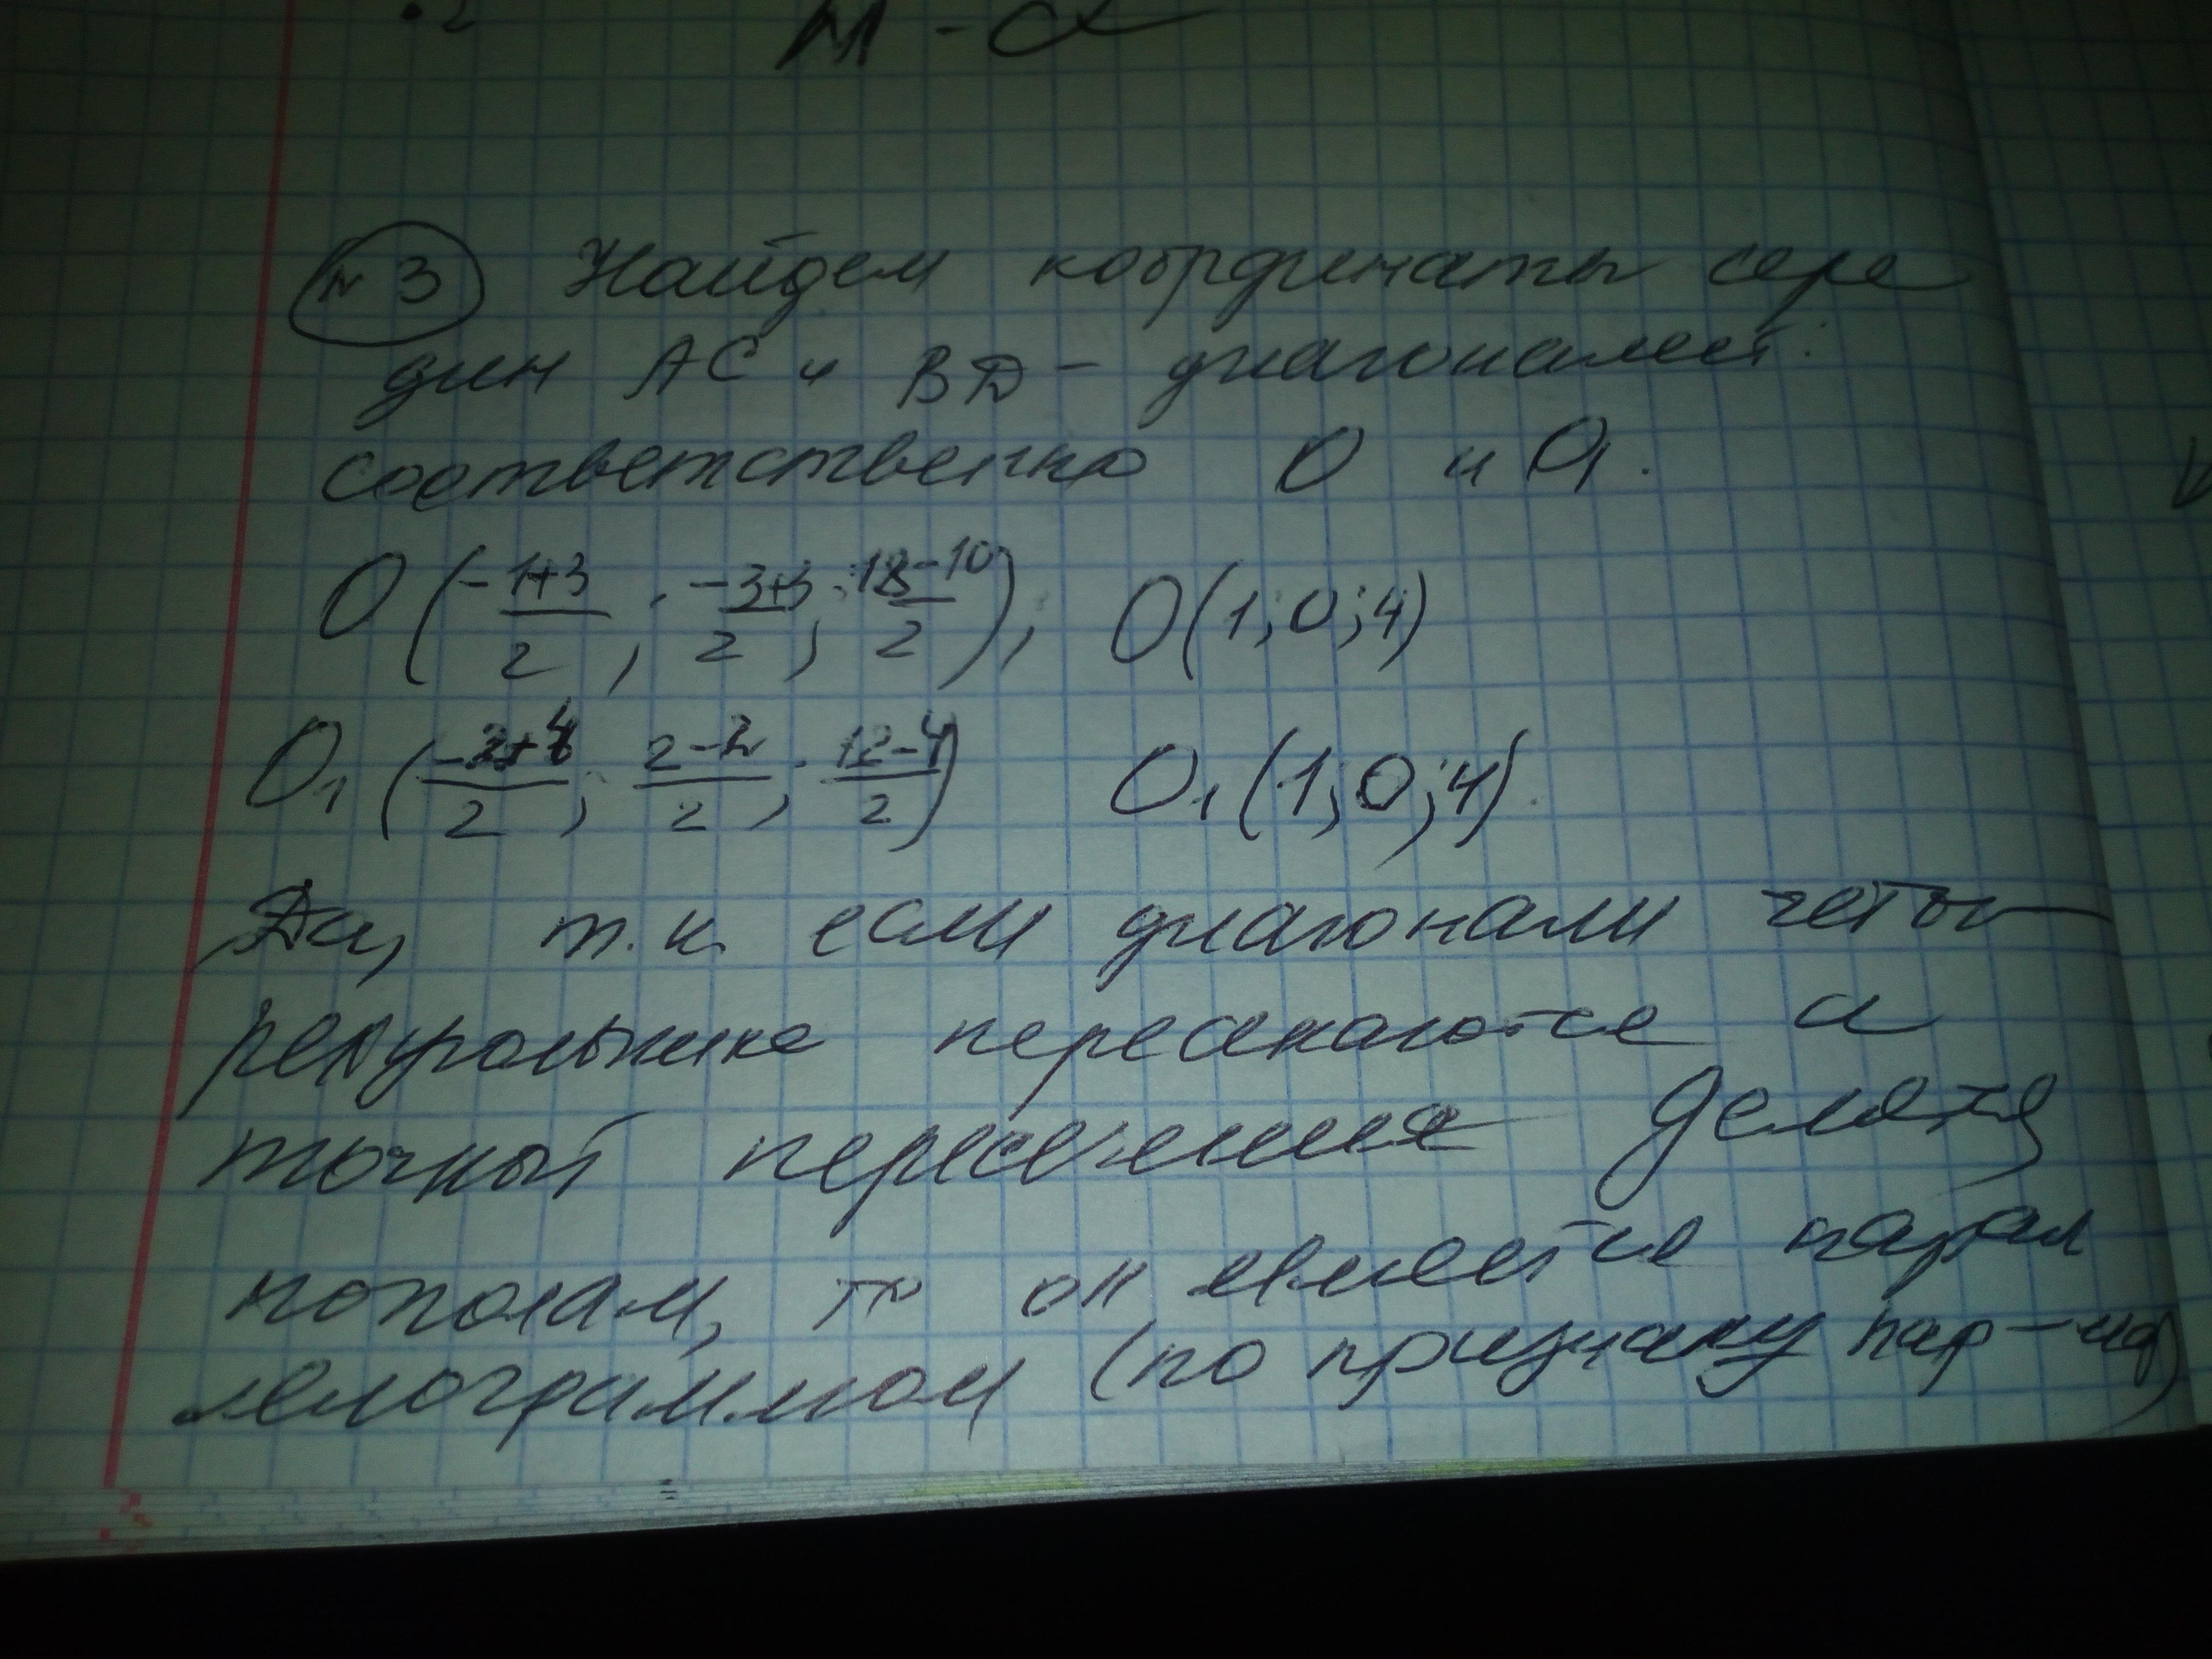 М - α
№ 3 Найдем координаты сере
дин AC и BD - диагоналей:
соответственно O и O₁.
O (-1+3/2; -3+3/2; 18-10/2); O(1;0;4)
O₁ (-2+4/2; 2-2/2; 12-4/2) O₁(1;0;4).
Да, т.к. если диагонали четы-
рехугольника пересекаются и
точкой пересечения делятся
пополам, то он является парал
лелограммом (по признаку пар-ма)